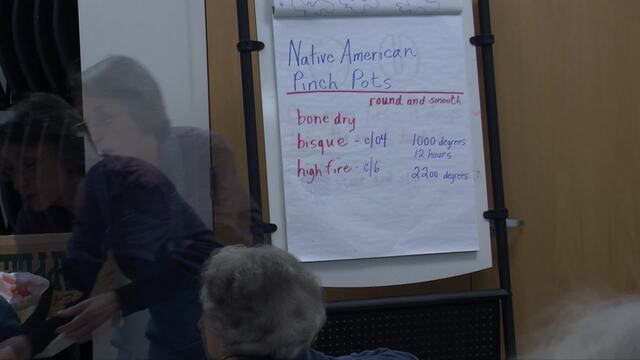 Native American
Pinch Pots
round and smooth
bone dry
bisque - c/04 1000 degrees
12 hours
high fire - c/6 2200 degrees